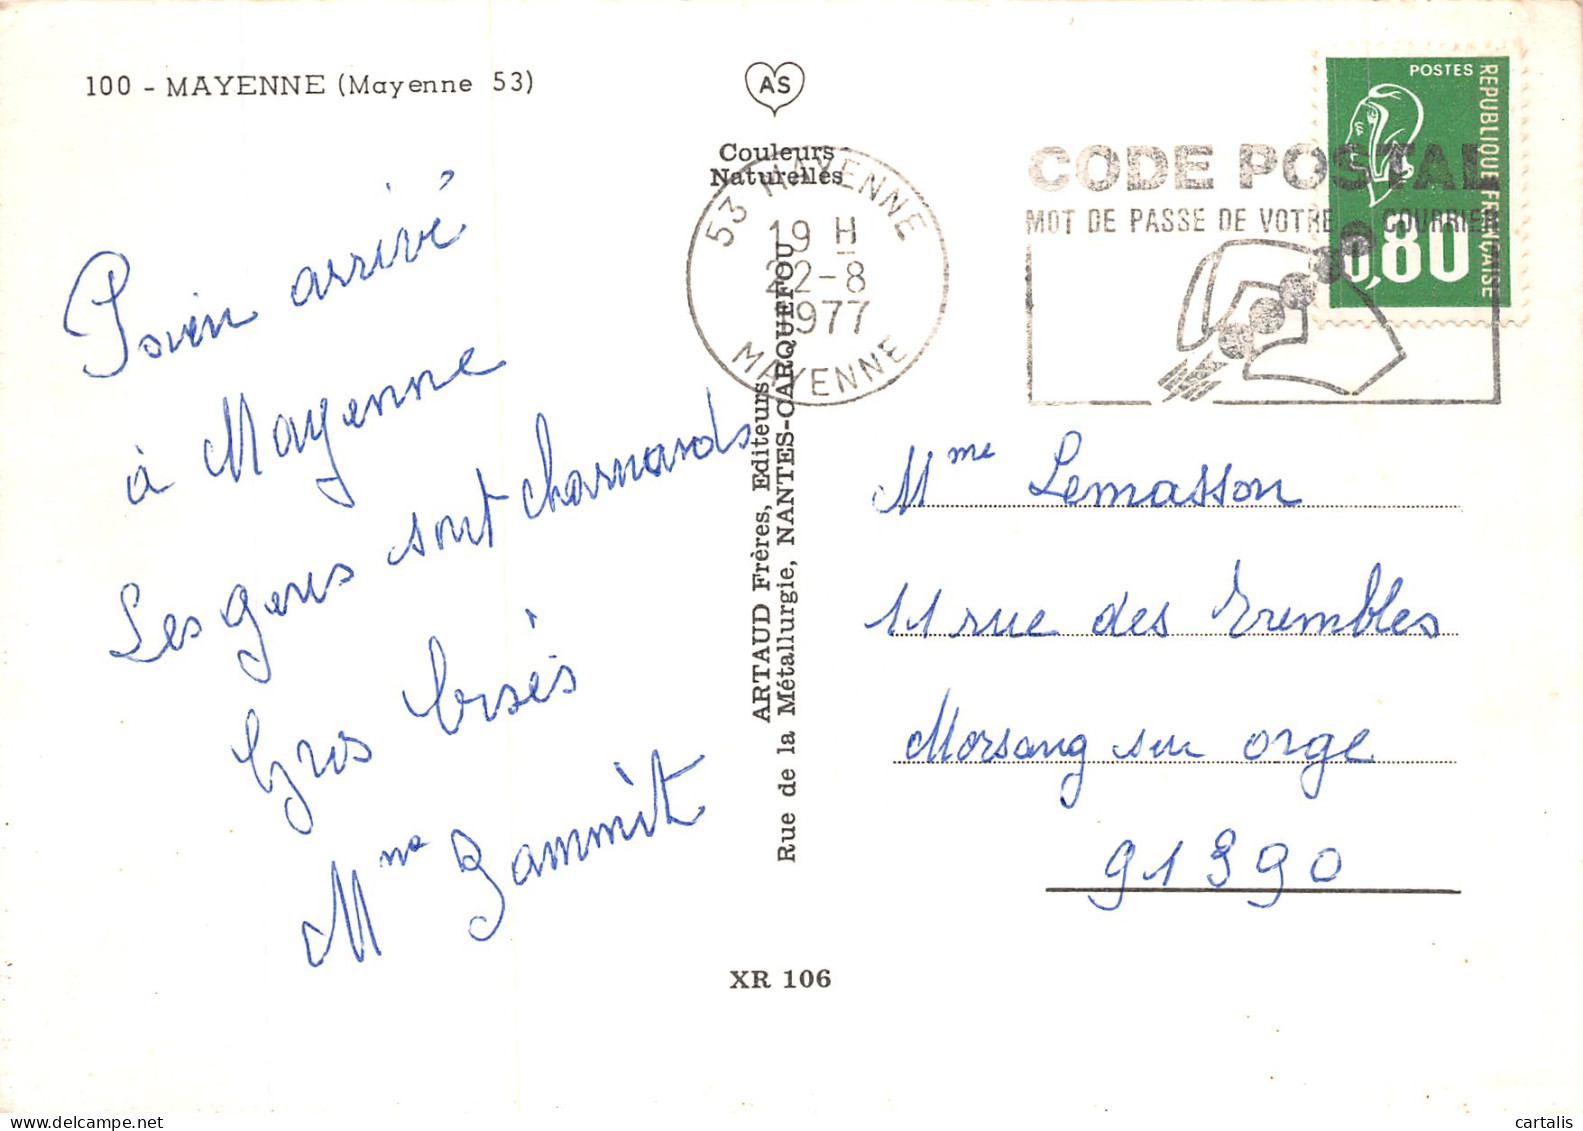 100 - MAYENNE (Mayenne 53)
AS
Couleurs
Naturelles
53 MAYENNE
19 H
22-8
1977
MAYENNE
CODE POSTAL
MOT DE PASSE DE VOTRE COURRIER
POSTES
REPUBLIQUE FRANCAISE
0,80
arrivé
à Mayenne
Les gens sont charmards
Gros bisés
Mme Gammit
ARTAUD Frères, Editeurs
Rue de la Métallurgie, NANTES-CARQUEFOU
Mme Lemasson
11 rue des Trembles
Morsang sur orge
91390
XR 106
cartalis